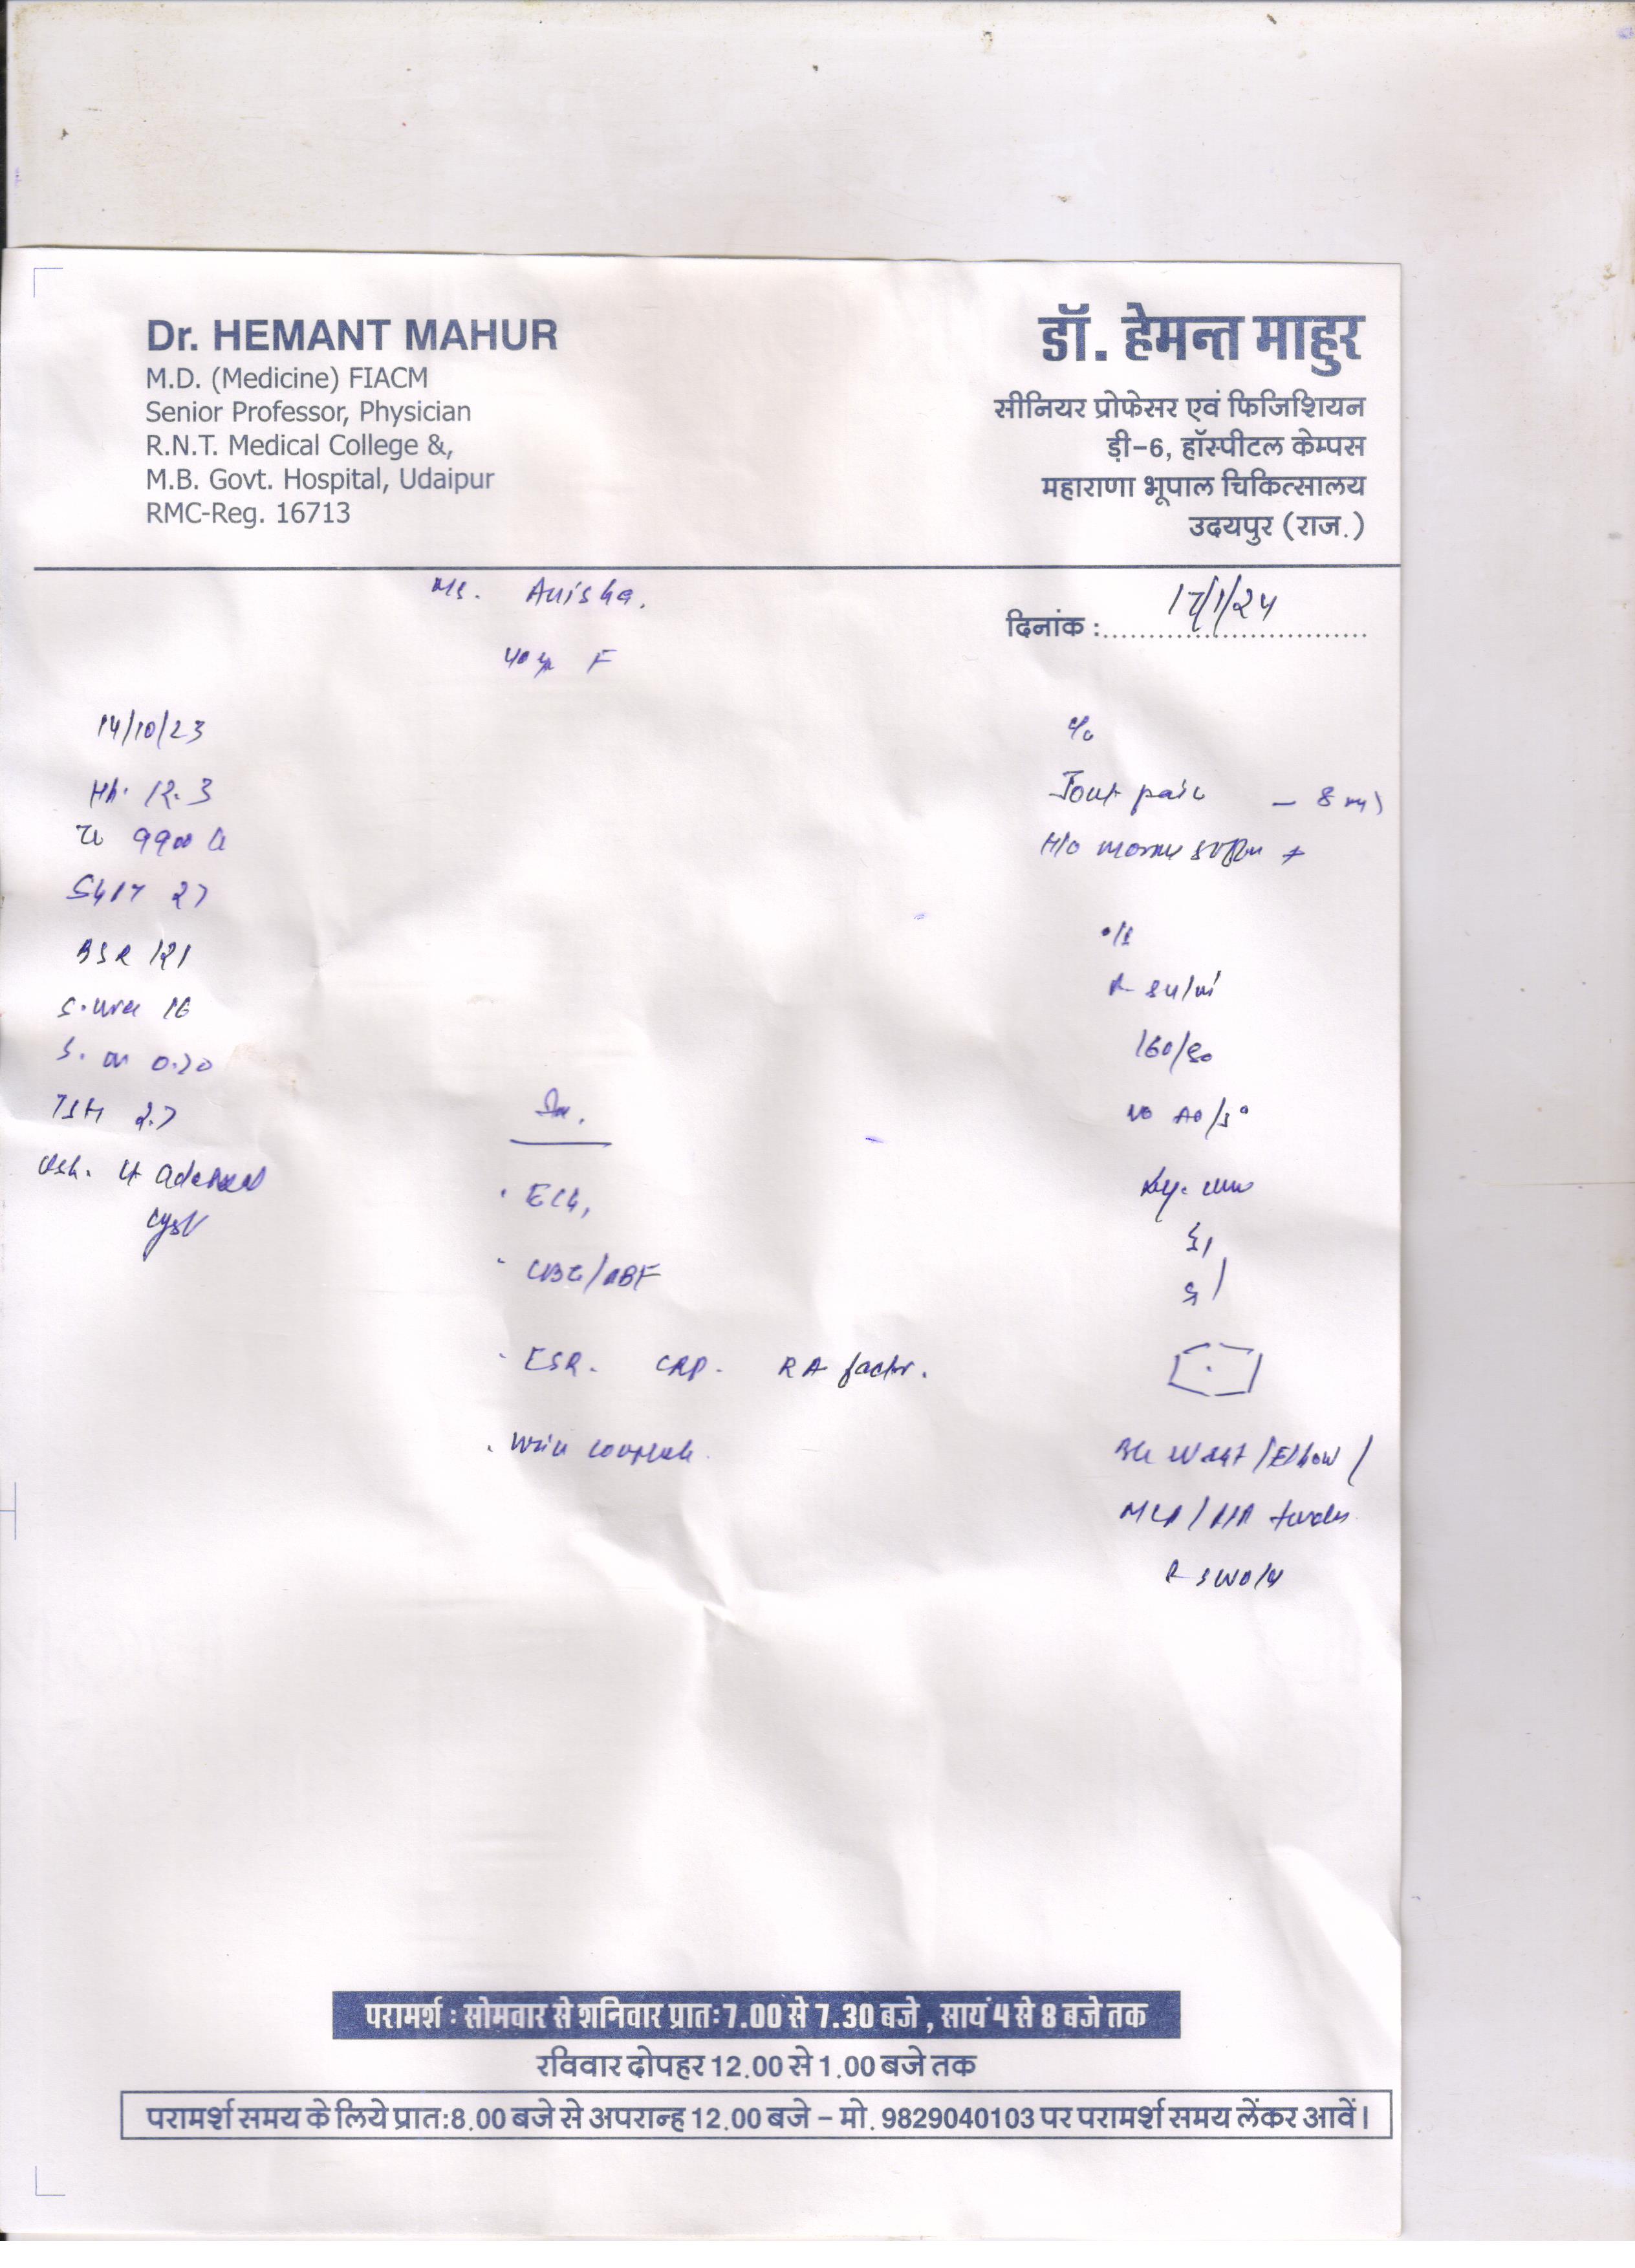 Dr. HEMANT MAHUR
M.D. (Medicine) FIACM
Senior Professor, Physician
R.N.T. Medical College &,
M.B. Govt. Hospital, Udaipur
RMC-Reg. 16713
डॉ. हेमन्त माहुर
सीनियर प्रोफेसर एवं फिजिशियन
ड़ी-6, हॉस्पीटल केम्पस
महाराणा भूपाल चिकित्सालय
उदयपुर (राज.)
Ms. Anisha.
दिनांक : 17/1/24
40 yr F
14/10/23
Hb. 12.3
9900
SGPT 27
BSR 121
S. urea 16
TSH 2.7
cyst
c/o
Joint pain - 8
H/o +
O/E
160/80
No
S1
Wrist / Elbow /
MCP / PIP
ECG,
CBC/
ESR. CRP. RA factor.
Urine complete.
परामर्श : सोमवार से शनिवार प्रातः 7.00 से 7.30 बजे , सायं 4 से 8 बजे तक
रविवार दोपहर 12.00 से 1.00 बजे तक
परामर्श समय के लिये प्रातः8.00 बजे से अपरान्ह 12.00 बजे – मो. 9829040103 पर परामर्श समय लेंकर आवें।